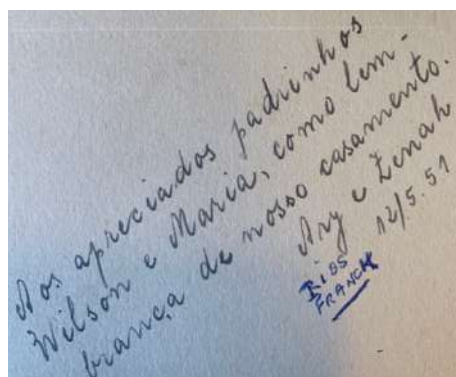 Aos apreciados padrinhos
Wilson e Maria, como lem-
brança de nosso casamento.
Ary e Zenah
12/5.51
RIOS
FRANCK